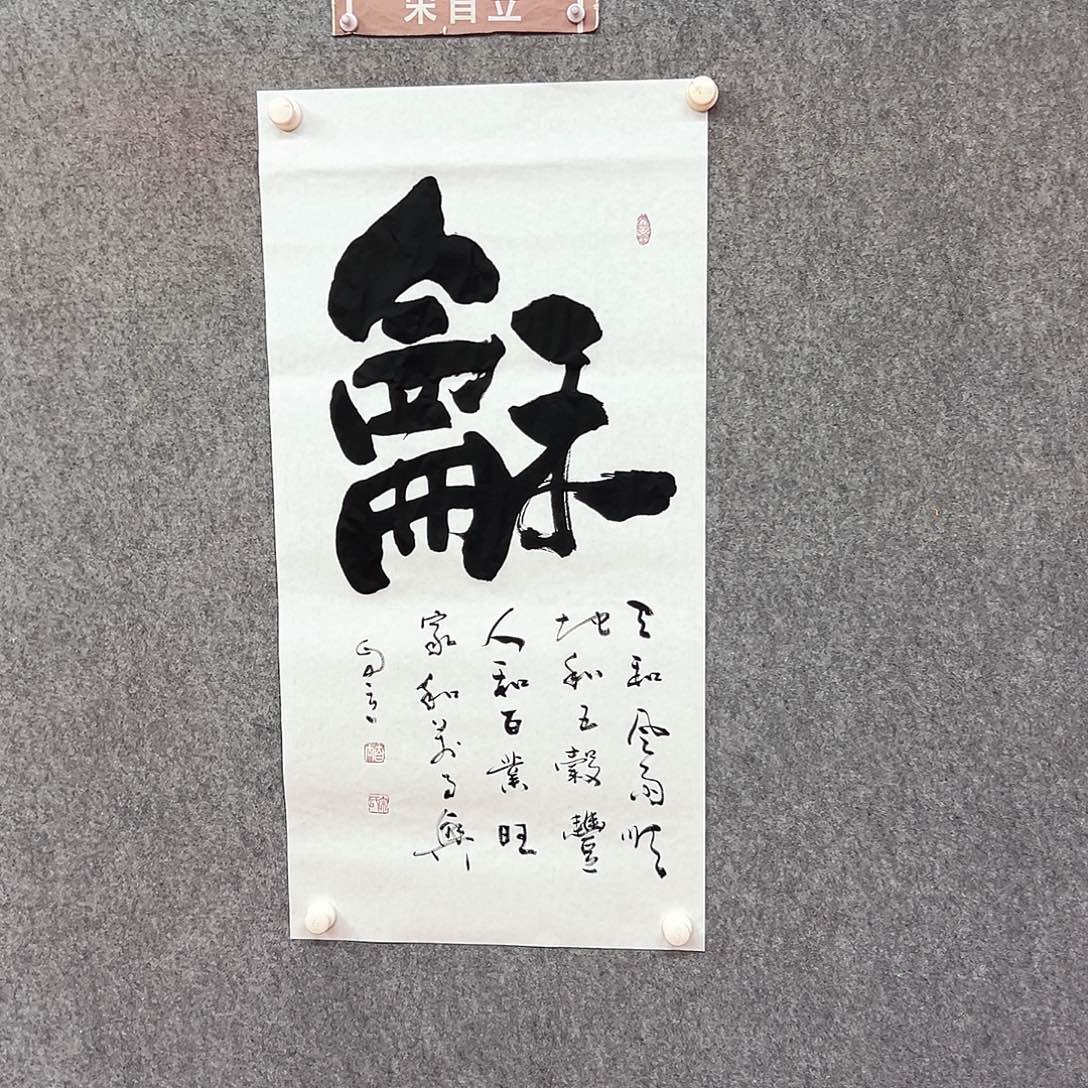 宋自立
龢
天和风雨顺
地和五穀豐
人和百業旺
家和萬事興
自立